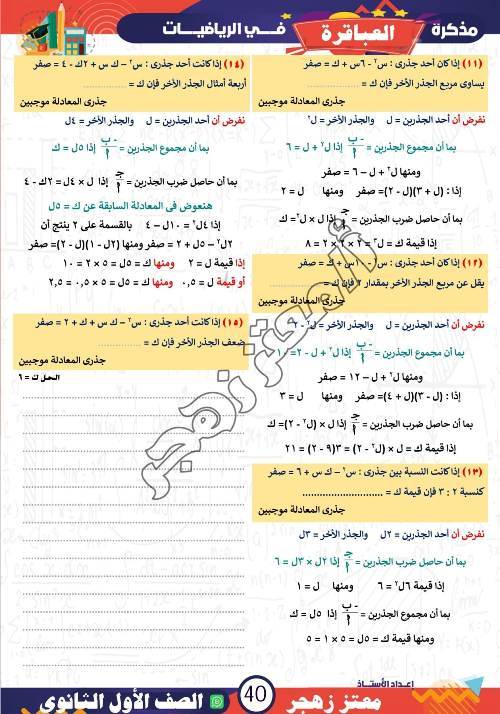 مذكرة العباقرة في الرياضيات
(١١) إذا كان أحد جذرى : س٢ - ٦س + ك = صفر
يساوى مربع الجذر الأخر فإن ك = ............
جذرى المعادلة موجبين
نفرض أن أحد الجذرين = ل والجذر الأخر = ل٢
بما أن مجموع الجذرين = -ب/أ إذا ل٢ + ل = ٦
ومنها ل٢ + ل - ٦ = صفر
إذا : (ل + ٣)(ل - ٢)= صفر ومنها ل = ٢
بما أن حاصل ضرب الجذرين = جـ/أ إذا ل × ل٢= ك
إذا قيمة ك = ل٣ = ٢ × ٢ × ٢ = ٨
(١٢) إذا كان أحد جذرى : س٢ - ١٠س + ك = صفر
يقل عن مربع الجذر الأخر بمقدار ٢ فإن ك = ......
جذرى المعادلة موجبين
نفرض أن أحد الجذرين = ل والجذر الأخر = ل٢ - ٢
بما أن مجموع الجذرين = -ب/أ إذا ل٢ + ل - ٢ = ١٠
ومنها ل٢ + ل - ١٢ = صفر
إذا : (ل - ٣)(ل + ٤)= صفر ومنها ل = ٣
بما أن حاصل ضرب الجذرين = جـ/أ إذا ل × (ل٢ - ٢)= ك
إذا قيمة ك = ل × (ل٢ - ٢) = ٣(٩ - ٢) = ٢١
(١٣) إذا كانت النسبة بين جذرى : س٢ - ك س + ٦ = صفر
كنسبة ٢ : ٣ فإن قيمة ك = ............................
جذرى المعادلة موجبين
نفرض أن أحد الجذرين = ٢ل والجذر الأخر = ٣ل
بما أن حاصل ضرب الجذرين = جـ/أ إذا ٢ل × ٣ل = ٦
إذا قيمة ٦ل٢ = ٦ ومنها ل = ١
بما أن مجموع الجذرين = -ب/أ إذا ٥ل = ك
ومنها قيمة ك = ٥ل = ٥ × ١ = ٥
(١٤) إذا كانت أحد جذرى : س٢ - ك س + ٢ك - ٤ = صفر
أربعة أمثال الجذر الأخر فإن ك = ............
جذرى المعادلة موجبين
نفرض أن أحد الجذرين = ل والجذر الأخر = ٤ل
بما أن مجموع الجذرين = -ب/أ إذا ٥ل = ك
بما أن حاصل ضرب الجذرين = جـ/أ إذا ل × ٤ل = ٢ك - ٤
هنعوض فى المعادلة السابقة عن ك = ٥ل
إذا ٤ل٢ = ١٠ل - ٤ بالقسمة على ٢ ينتج أن
٢ل٢ - ٥ل + ٢ = صفر ومنها (٢ل - ١)(ل - ٢)= صفر
إذا قيمة ل = ٢ ومنها ك = ٥ل = ٥ × ٢ = ١٠
أو قيمة ل = ٠,٥ ومنها ك = ٥ل = ٥ × ٠,٥ = ٢,٥
(١٥) إذا كانت أحد جذرى : س٢ - ك س + ك + ٢ = صفر
ضعف الجذر الأخر فإن ك = ............
جذرى المعادلة موجبين
الحل ك = ٦
أ/معتز زهجر
إعداد الأستاذ
معتز زهجر
40
الصف الأول الثانوى